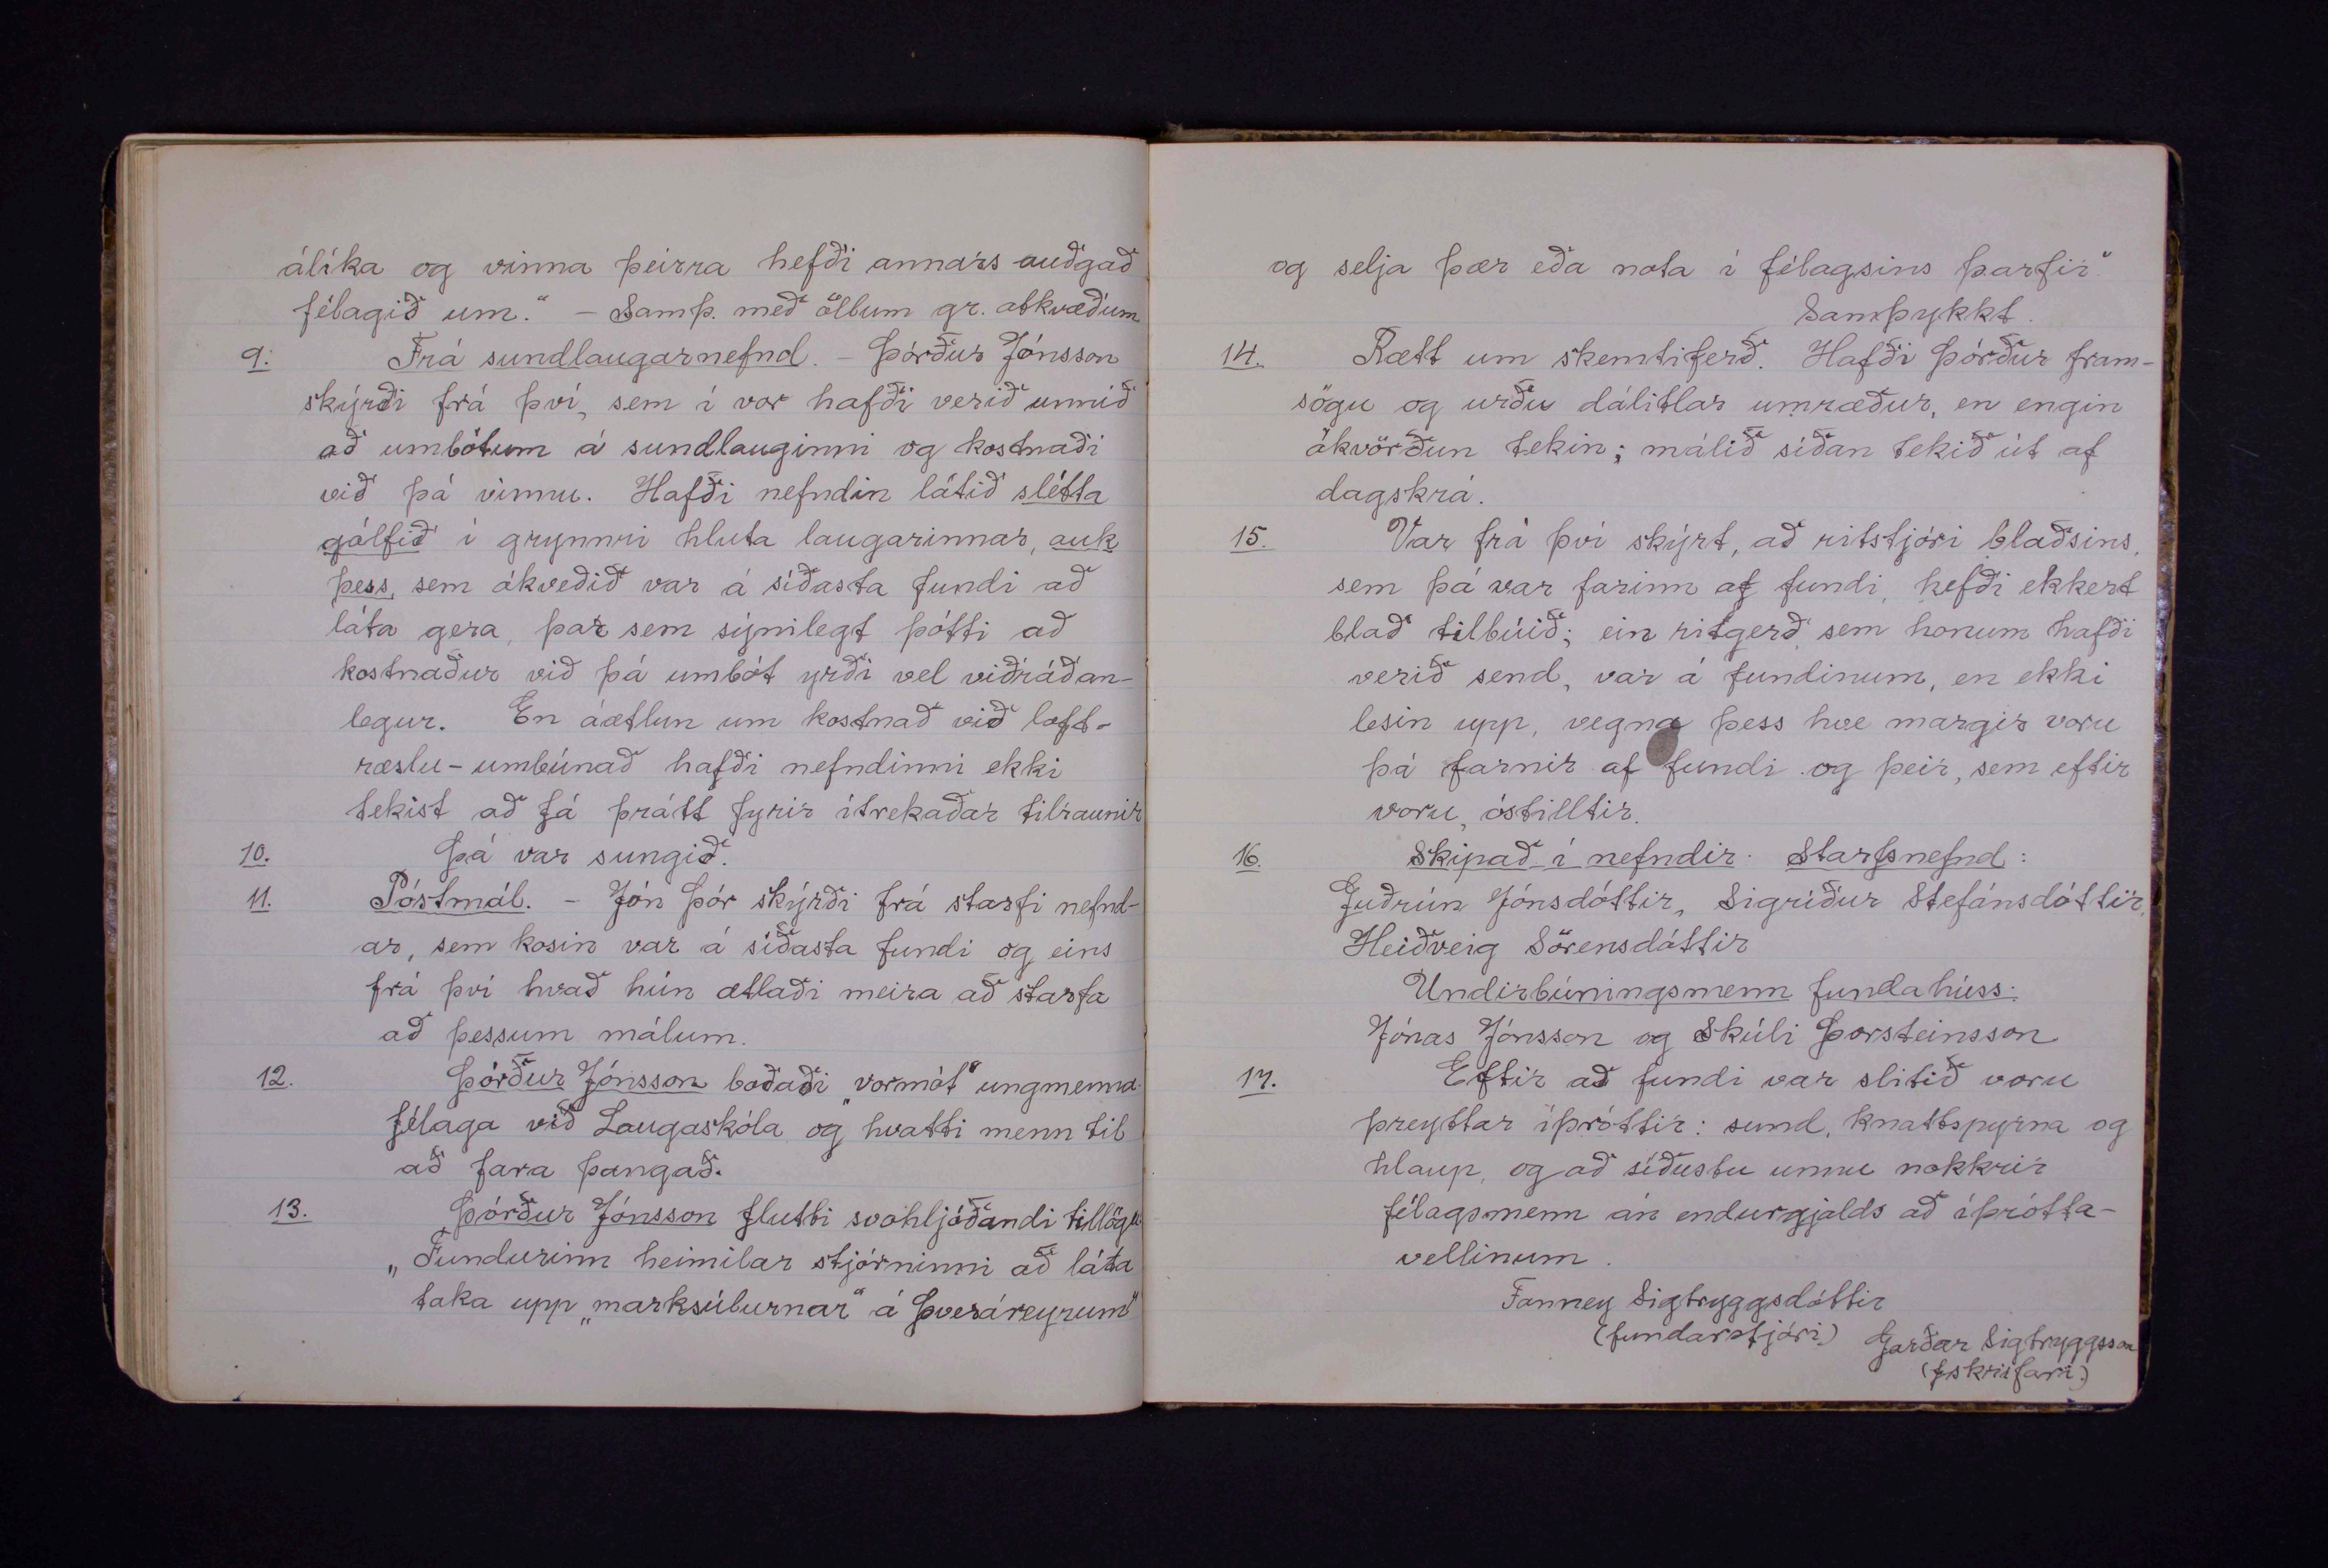 álíka og vinna þeirra hefði annars auðgað
félagið um." – Samþ. með öllum gr. atkvæðum
9. Frá sundlaugarnefnd. – Þórður Jónsson
skýrði frá því, sem í vor hafði verið unnið
að umbótum á sundlauginni og kostnaði
við þá vinnu. Hafði nefndin látið slétta
gólfið í grynnri hluta laugarinnar, auk
þess, sem ákveðið var á síðasta fundi að
láta gera, þar sem sýnilegt þótti að
kostnaður við þá umbót yrði vel viðráðan-
legur. En áætlun um kostnað við loft-
ræslu-umbúnað hafði nefndinni ekki
tekist að fá þrátt fyrir ítrekaðar tilraunir
10. Þá var sungið.
11. Póstmál. – Jón Þór skýrði frá starfi nefnd-
ar, sem kosin var á síðasta fundi og eins
frá því hvað hún ætlaði meira að starfa
að þessum málum.
12. Þórður Jónsson boðaði „vormót" ungmenna-
félaga við Laugaskóla og hvatti menn til
að fara þangað.
13. Þórður Jónsson flutti svohljóðandi tillögu
„Fundurinn heimilar stjórninni að láta
taka upp „marksúlurnar" á Þveráreyrum"
og selja þær eða nota í félagsins þarfir"
Samþykkt.
14. Rætt um skemtiferð. Hafði Þórður fram-
sögu og urðu dálitlar umræður, en engin
ákvörðun tekin; málið síðan tekið út af
dagskrá.
15. Var frá því skýrt, að ritstjóri blaðsins,
sem þá var farinn af fundi, hefði ekkert
blað tilbúið; ein ritgerð, sem honum hafði
verið send, var á fundinum, en ekki
lesin upp, vegna þess hve margir voru
þá farnir af fundi og þeir, sem eftir
voru, óstilltir.
16. Skipað í nefndir. Starfsnefnd:
Guðrún Jónsdóttir, Sigríður Stefánsdóttir,
Heiðveig Sörensdóttir
Undirbúningsmenn fundahúss:
Jónas Jónsson og Skúli Þorsteinsson
17. Eftir að fundi var slitið voru
þreyttar íþróttir: sund, knattspyrna og
hlaup, og að síðustu unnu nokkrir
félagsmenn án endurgjalds að íþrótta-
vellinum.
Fanney Sigtryggsdóttir
(fundarstjóri)
Garðar Sigtryggsson
(f.skrifari.)